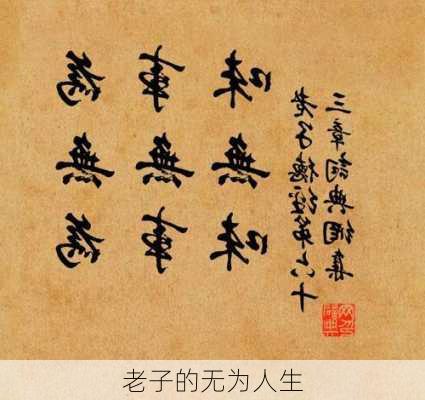 為無為
事無事
味無味
老子德經第六十
三章詞典網集
老子的无为人生